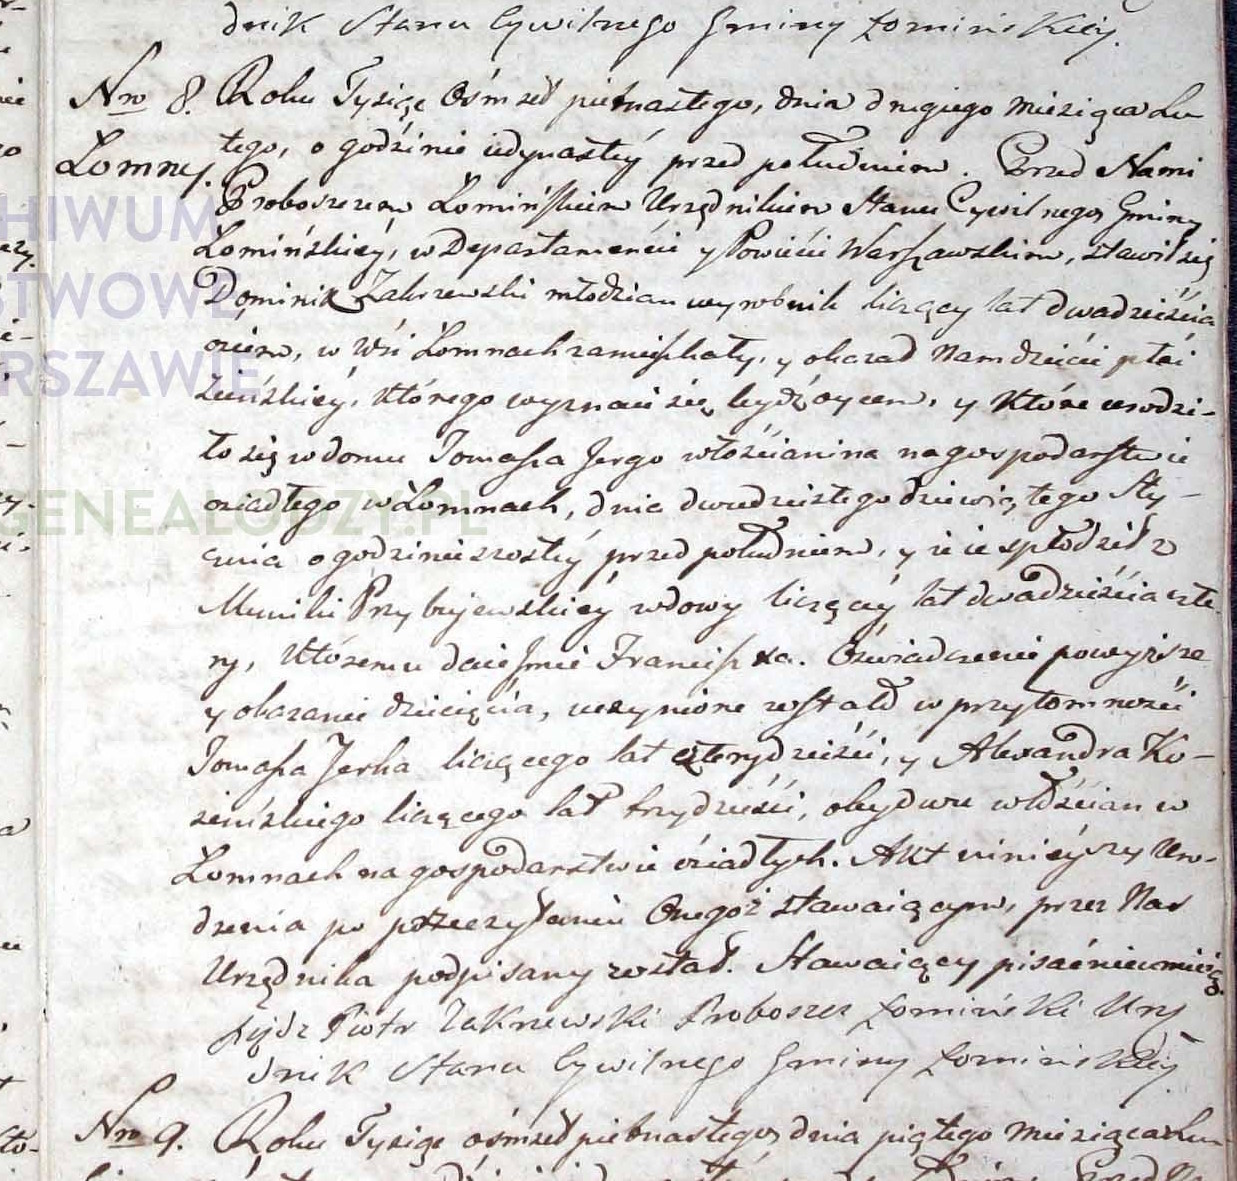 dnik Stanu Cywilnego Gminy Łomińskiey.
Nro 8. Roku Tysiąc Ośmset piętnastego, dnia drugiego Miesiąca Lu
Łomney. tego, o godzinie iedynastéy przed południem. Przed Nami
Proboszczem Łomińskim Urzędnikiem Stanu Cywilnego Gminy
Łomińskiéy, w Departamencie y Powiecie Warszawskim, stawił się
Dominik Zakrzewski młodzian wyrobnik liczący lat dwadzieścia
osiem, w Wsi Łomnach zamieszkały, y okazał Nam dziécie płci
żeńskiéy, którego wyznaie się bydź oycem, y które urodzi-
ło się w domu Tomasza Jergo włościanina na gospodarstwie
osiadłego w Łomnach, dnia dwudziestego dziewiątego Sty-
cznia o godzinie szostéy przed południem, y że ie spłodził z
Muniki Przybujewskiéy wdowy liczącéy lat dwadzieścia czte
ry, któremu daie Jmie Franciszka. Oświadczenie powyższe
y okazanie dziecięcia, uczynione zostałO w przytomności
Tomasza Jerka liczącego lat czterydzieści, y Alexandra Ko-
sieńskiego liczącego lat trzydzieści, obydwu włościan w
Łomnach na gospodarstwie osiadłych. Akt ninieyszy Uro-
dzenia po przeczytaniu Onegoż stawaiącym, przez Nas
Urzędnika podpisany został. Stawaiący pisać nieumieią.
Xiądz Piotr Zakrzewski Proboszcz Łomiński Urzę
dnik Stanu Cywilnego Gminy Łomińskiéy
Nro 9. Roku Tysiąc ośmset piętnastego, dnia piątego Miesiąca Lu-
HIWUM
STWOWE
RSZAWIE
GENEALODZY.PL